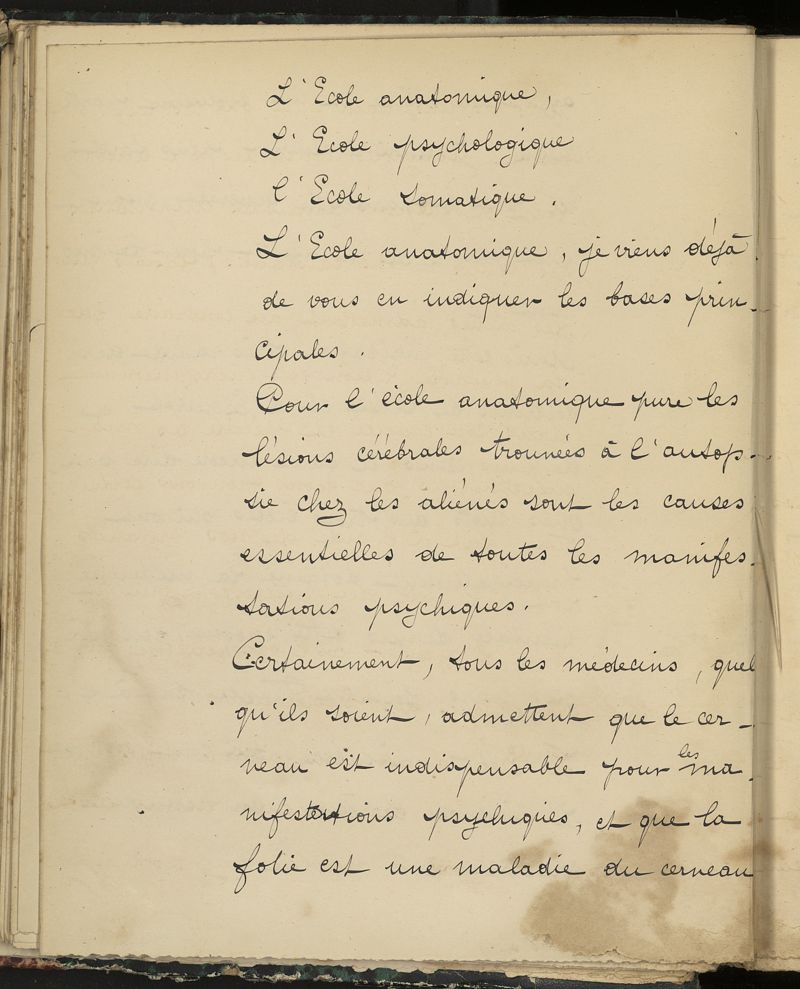 L'Ecole anatomique,
L'Ecole psychologique
l'Ecole somatique.
L'Ecole anatomique, je viens déjà
de vous en indiquer les bases prin-
cipales.
Pour l'école anatomique pure les
lésions cérébrales trouvées à l'autop-
sie chez les aliénés sont les causes
essentielles de toutes les manifes-
tations psychiques.
Certainement, tous les médecins, quel
qu'ils soient, admettent que le cer-
veau est indispensable pour les ma-
nifestations psychiques, et que la
folie est une maladie du cerveau